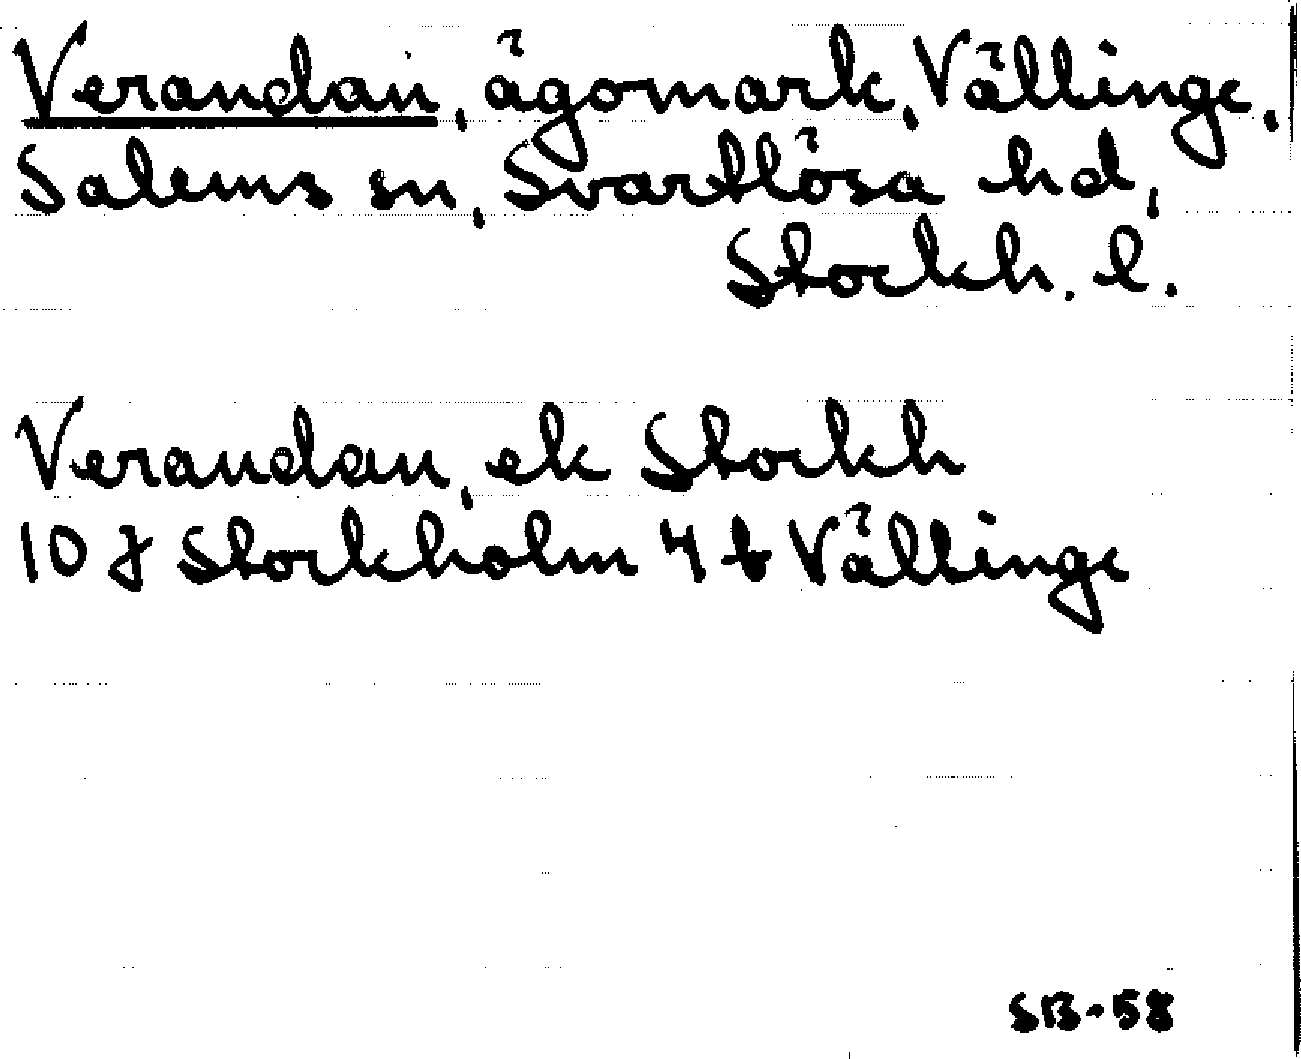 Verandan, ägomark, Vällinge,
Salems sn, Svartlösa hd,
Stockh. l.
Verandan, ek Stockh
10 J Stockholm 4 b Vällinge
SB-58